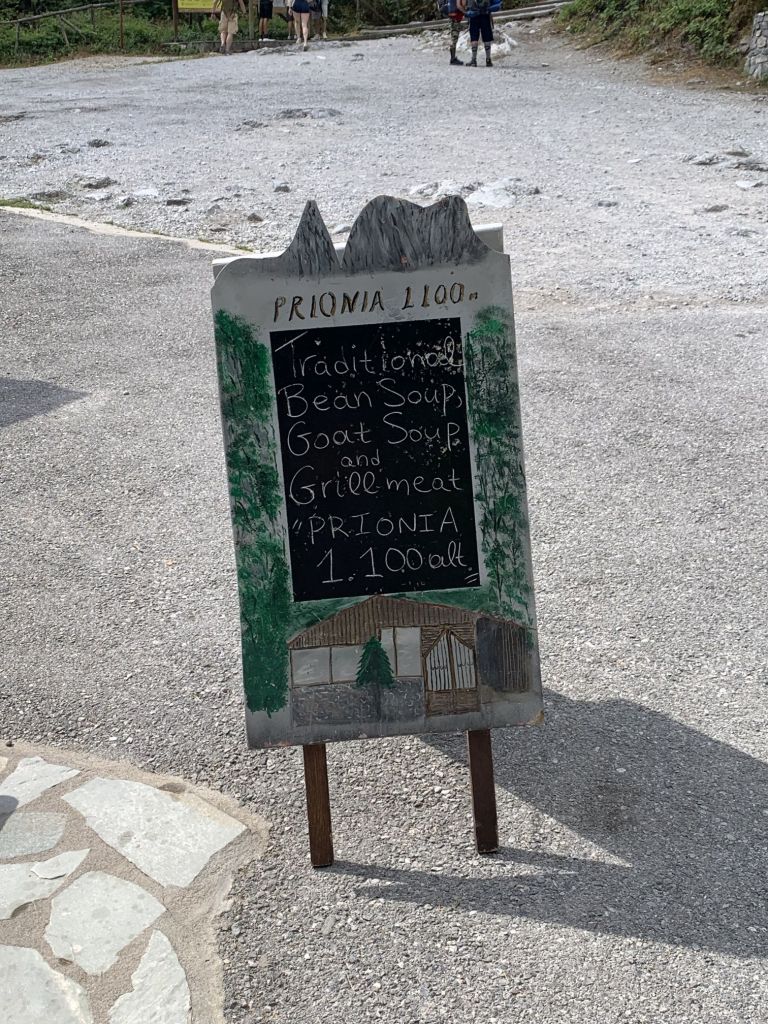 PRIONIA 1100m
Traditional
Bean Soup,
Goat Soup
and
Grill meat
"PRIONIA
1.100 alt."